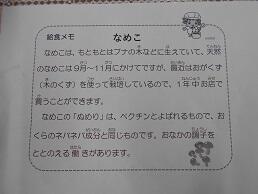 給食メモ なめこ
なめこは、もともとはブナの木などに生えていて、天然
のなめこは9月～11月にかけてですが、最近はおがくず
(木のくず)を使って栽培しているので、1年中お店で
買うことができます。
なめこの「ぬめり」は、ペクチンとよばれるもので、お
くらのネバネバ成分と同じものです。おなかの調子を
ととのえる働きがあります。